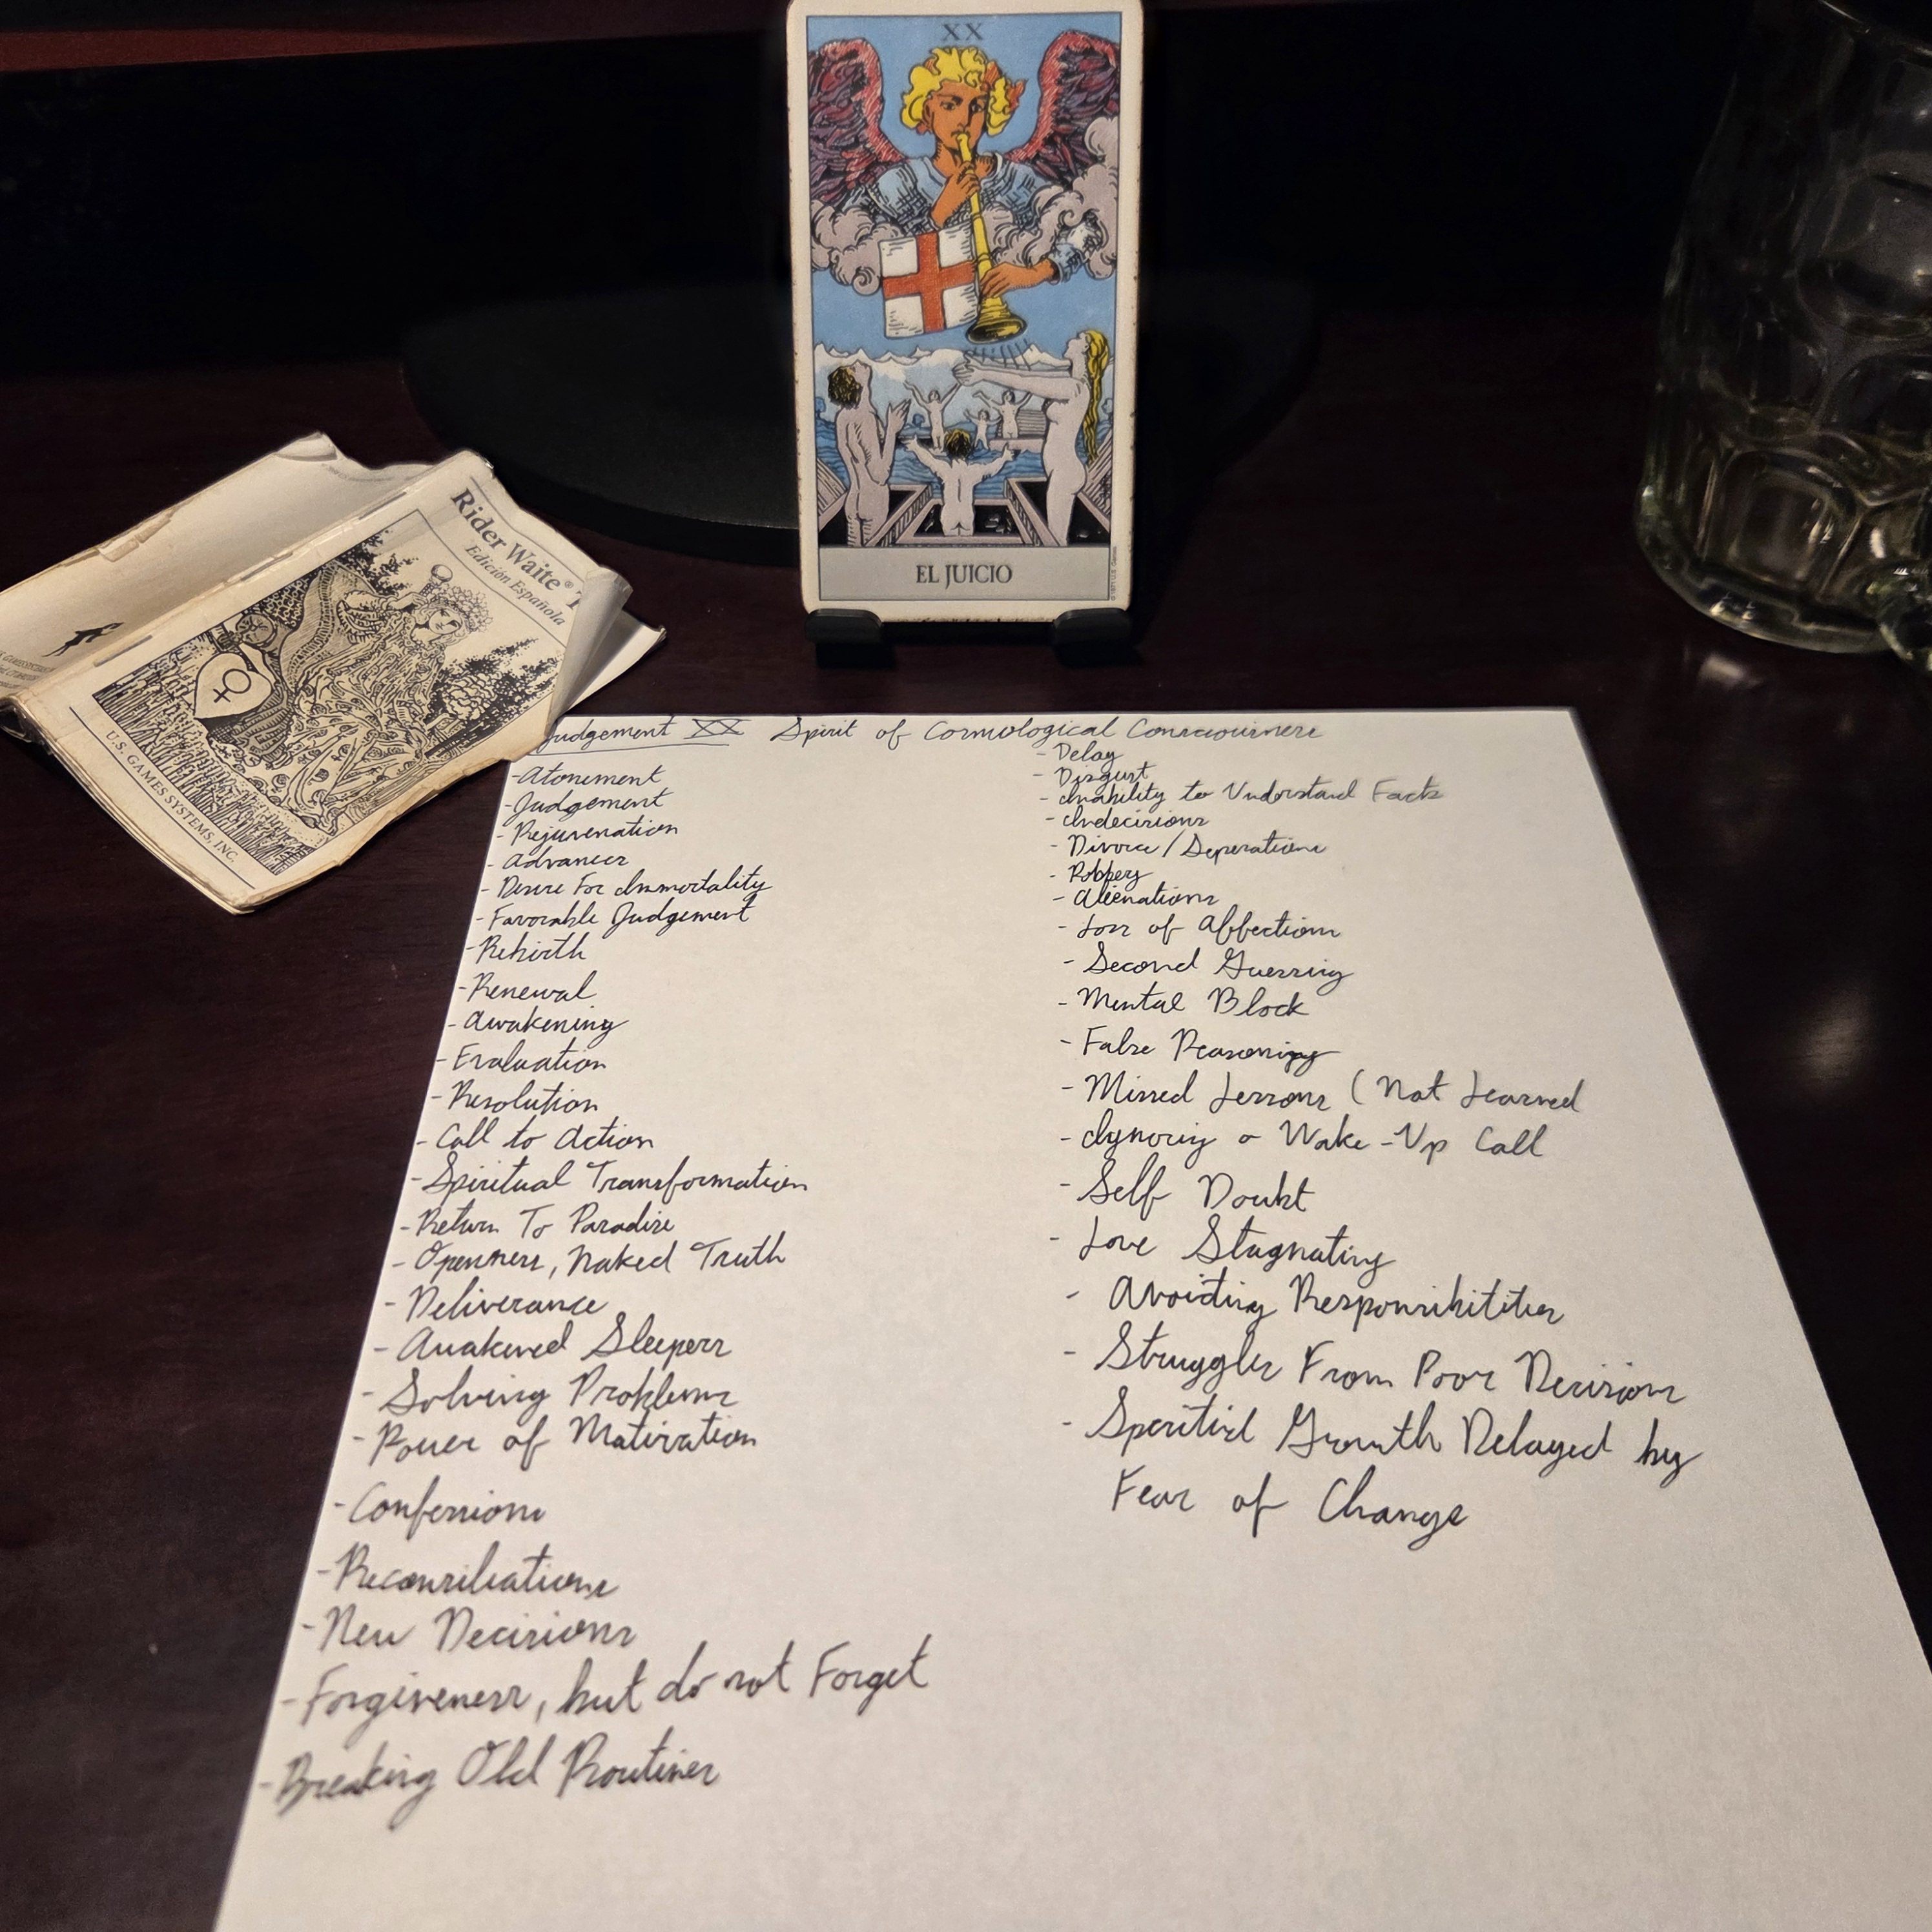 XX
EL JUICIO
Rider Waite®
Edición Española
U.S. GAMES SYSTEMS, INC.
Judgement XX Spirit of Cosmological Consciousness
- Atonement
- Judgement
- Rejuvenation
- Advances
- Desire For Immortality
- Favorable Judgement
- Rebirth
- Renewal
- Awakening
- Evaluation
- Resolution
- Call to Action
- Spiritual Transformation
- Return To Paradise
- Openness, Naked Truth
- Deliverance
- Awakened Sleepers
- Solving Problems
- Power of Motivation
- Confessions
- Reconciliations
- New Decisions
- Forgiveness, but do not Forget
- Breaking Old Routines
- Delay
- Disgust
- Inability to Understand Facts
- Indecisions
- Divorce / Seperations
- Robbery
- Alienations
- Loss of Affections
- Second Guessing
- Mental Block
- False Reasoning
- Missed Lessons (Not Learned
- Ignoring a Wake-Up Call
- Self Doubt
- Love Stagnating
- Avoiding Responsibilities
- Struggles From Poor Decisions
- Growth Delayed by
Fear of Change